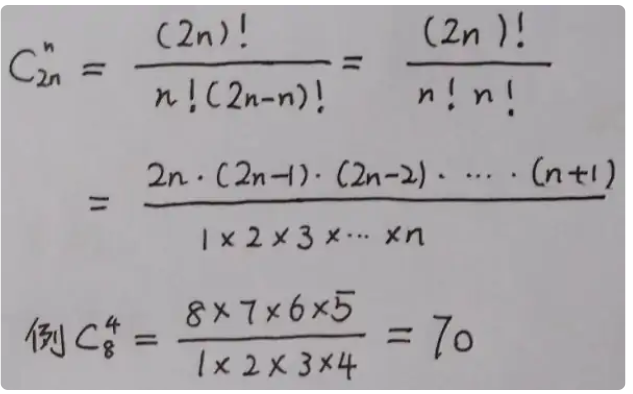 C₂ₙⁿ = (2n)! / n!(2n-n)! = (2n)! / n! n!
= 2n·(2n-1)·(2n-2)·⋯·(n+1) / 1×2×3×⋯×n
例 C₈⁴ = 8×7×6×5 / 1×2×3×4 = 70